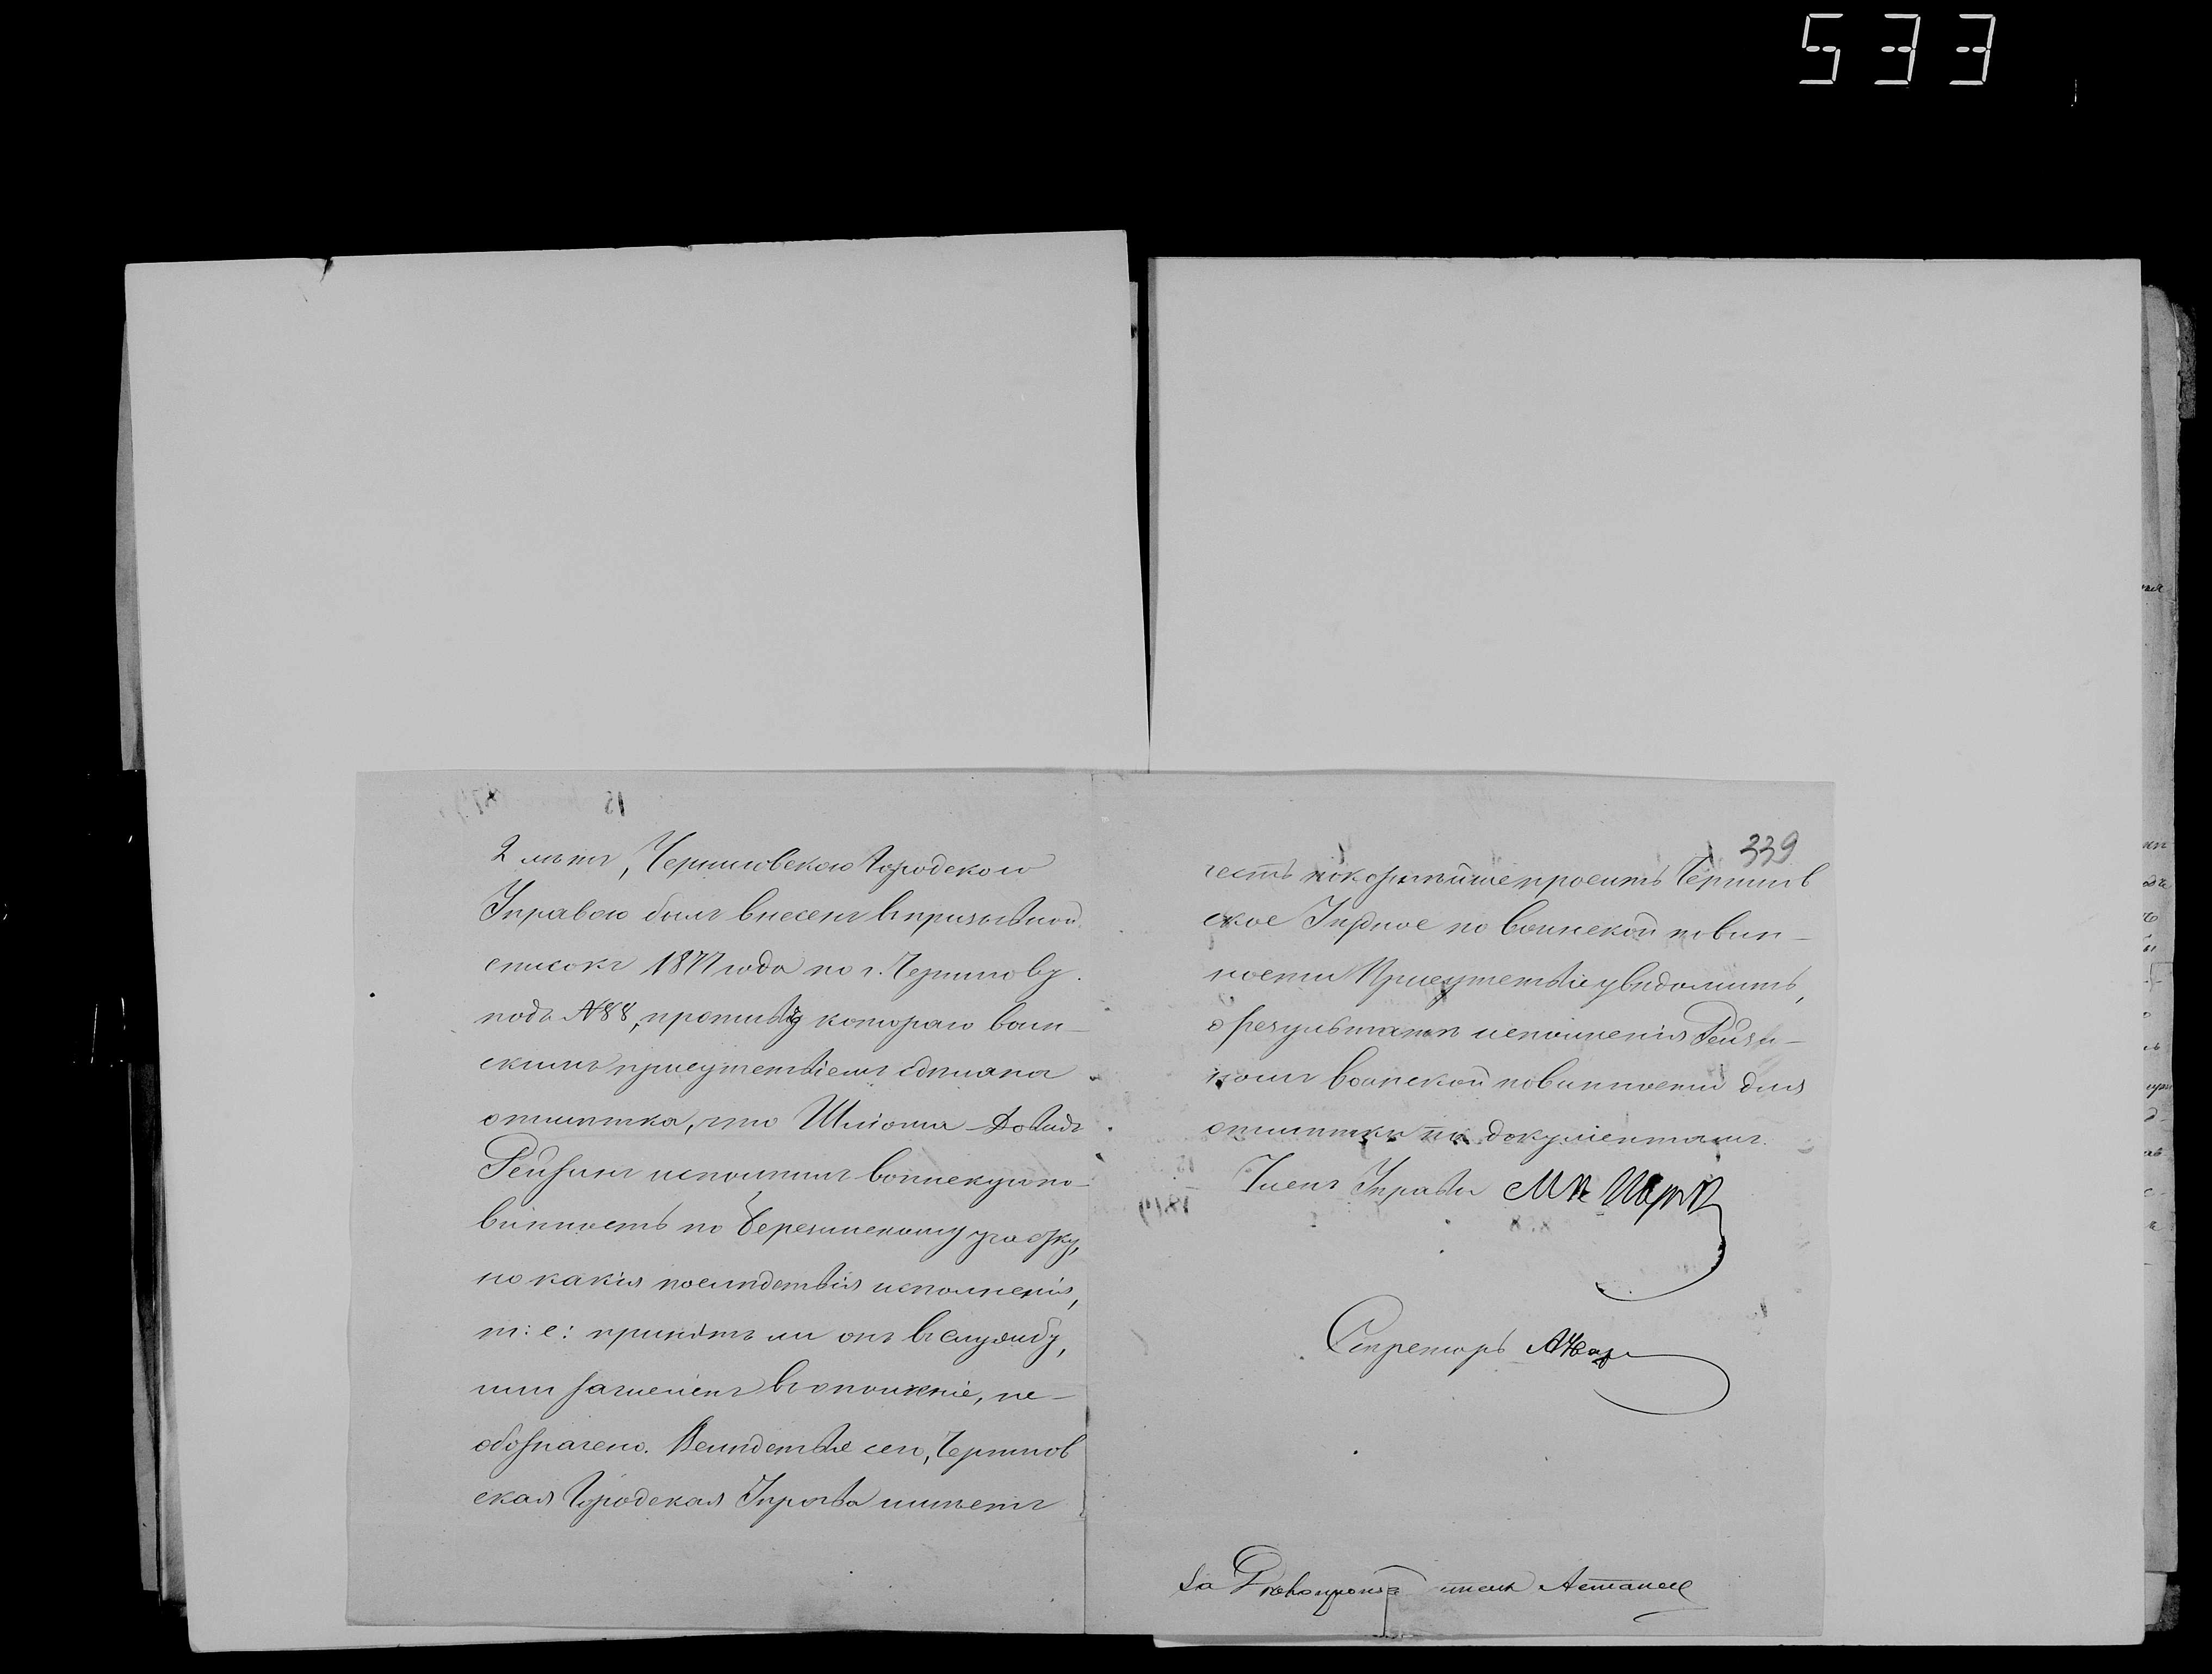 533
2 лѣтъ, Черниговскою Городскою
Управою былъ внесенъ въ призывной
списокъ 1877 года по г. Чернигову
подъ №88, противъ котораго воин-
скимъ присутствіемъ сдѣлана
отмѣтка, что Шліома-Довидъ
Рейзинъ исполнилъ воинскую по-
винность по Березинскому участку,
но какія послѣдствія исполненія,
т: е: принятъ ли онъ въ службу,
или зачисленъ въ ополченіе, не-
обозначено. Вслѣдствіе сего, Чернигов
ская Городская Управа имѣетъ
339
честь покорнѣйше просить Чернигов
ское Уѣздное по воинской повин-
ности Присутствіе увѣдомить,
о результатѣ исполненія Рейзи-
номъ воинской повинности для
отмѣтки по документамъ.
Членъ Управы
Секретарь
За